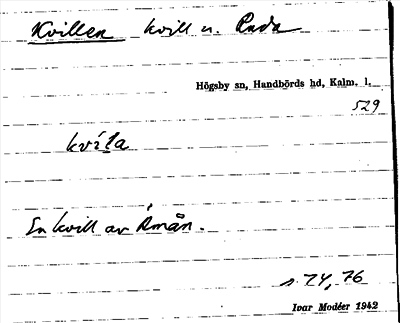 Kvillen kvill u. Ruda
Högsby sn, Handbörds hd, Kalm. l.
529
kvíļa
En kvill av Åmån.
s 74, 76
Ivar Modéer 1942